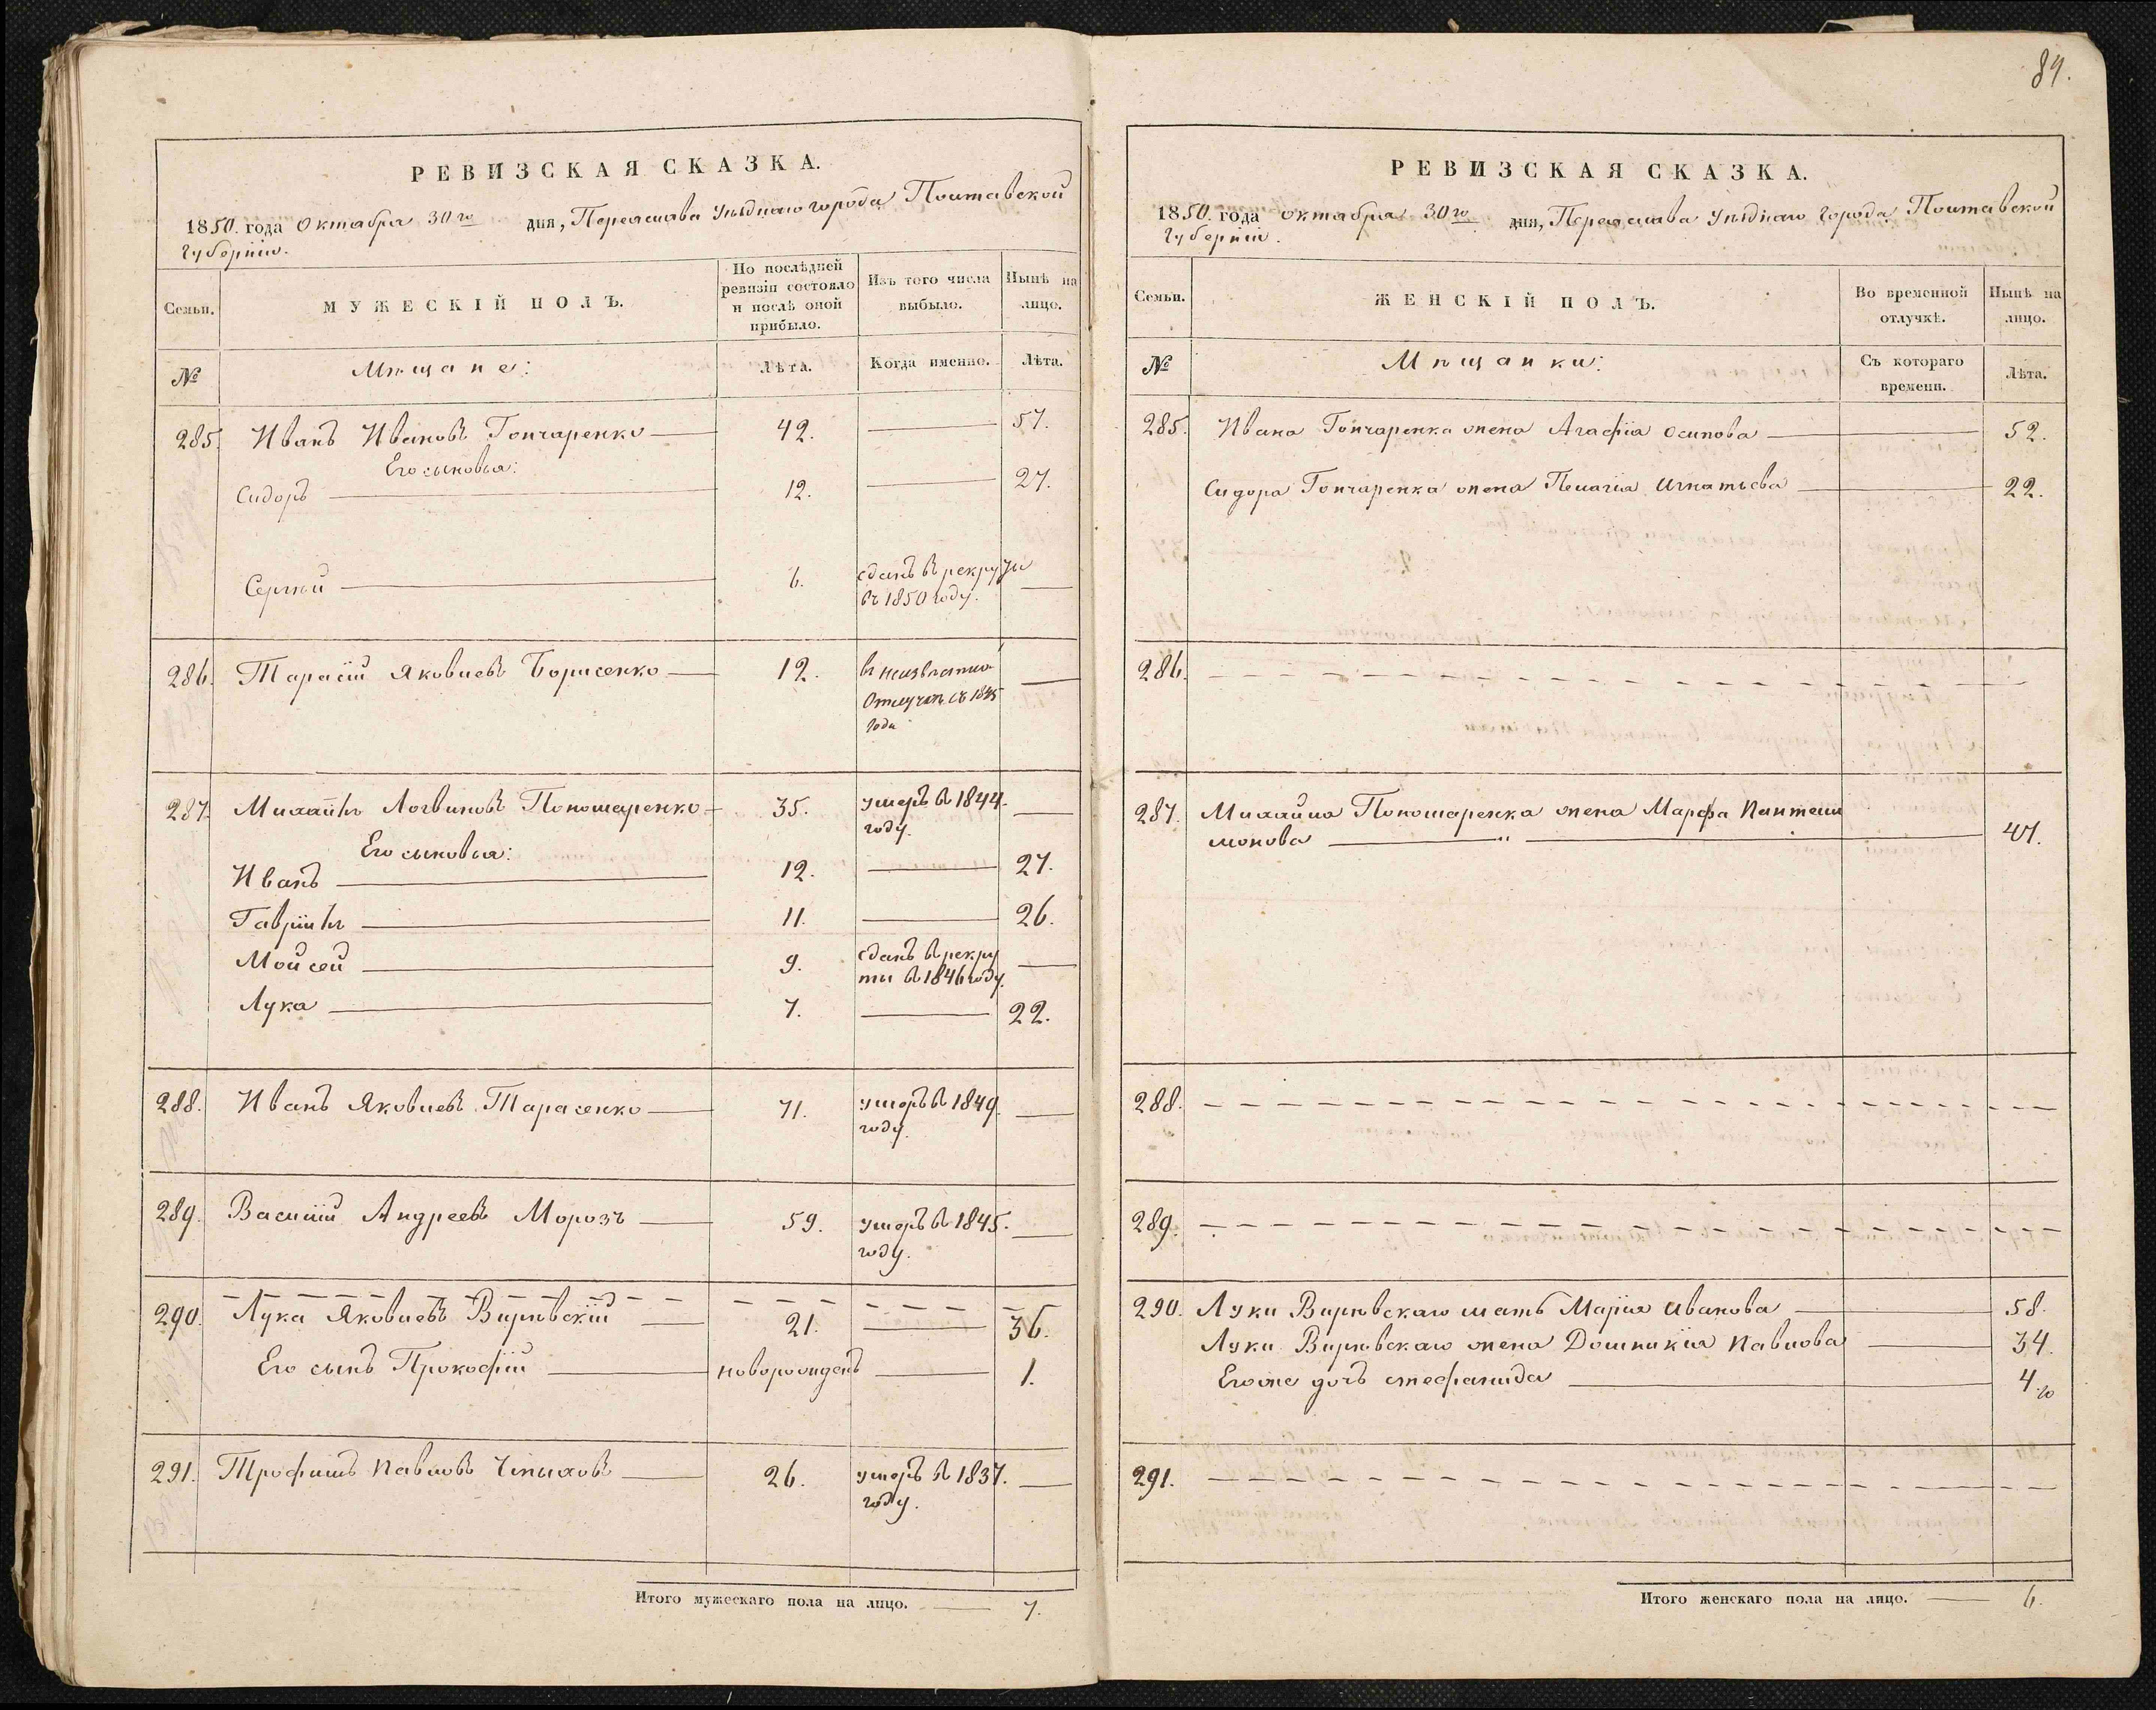 89.
РЕВИЗСКАЯ СКАЗКА.
1850. года Октября 30го дня, Переяслава уѣзднаго города Полтавской
Губерніи.
Семьи. МУЖЕСКІЙ ПОЛЪ. По послѣдней ревизіи состояло и послѣ оной прибыло. Изъ того числа выбыло. Нынѣ на лицо.
№ Мѣщане: Лѣта. Когда именно. Лѣта.
285. Иванъ Ивановъ Гончаренко 42. 57.
Его сыновья:
Сидоръ 12. 27.
Сергѣй 6. сданъ въ рекруты
въ 1850 году.
286. Тарасій Яковлевъ Борисенко 12. въ неизвѣстной
Отлучкѣ съ 1845
года
287. Михайлъ Логвиновъ Пономаренко 35. умеръ въ 1844.
году.
Его сыновья:
Иванъ 12. 27.
Гавріилъ 11. 26.
Мойсей 9. сданъ въ рекру
ты въ 1846 году.
Лука 7. 22.
288. Иванъ Яковлевъ Тарасенко 71. умеръ въ 1849.
году.
289. Василій Андреевъ Морозъ 59. умеръ въ 1845.
году.
290. Лука Яковлевъ Вирѣвскій 21. 36.
Его сынъ Прокофій новорожденъ 1.
291. Трофимъ Павловъ 26. умеръ въ 1837.
году.
Итого мужескаго пола на лицо. 7.
РЕВИЗСКАЯ СКАЗКА.
1850. года октября 30го дня, Переяслава уѣзднаго города Полтавской
Губерніи.
Семьи. ЖЕНСКІЙ ПОЛЪ. Во временной отлучкѣ. Нынѣ на лицо.
№ Мѣщанки: Съ котораго времени. Лѣта.
285. Ивана Гончаренка жена Агафія Осипова 52.
Сидора Гончаренка жена Пелагія Игнатьева 22.
286.
287. Михайла Пономаренка жена Марфа Пантели
монова " 47.
288.
289.
290. Луки Вирѣвскаго мать Марія Иванова 58.
Луки Вирѣвскаго жена Домникія Павлова 34.
Его же дочь Стефанида 4.
291.
Итого женскаго пола на лицо. 6.